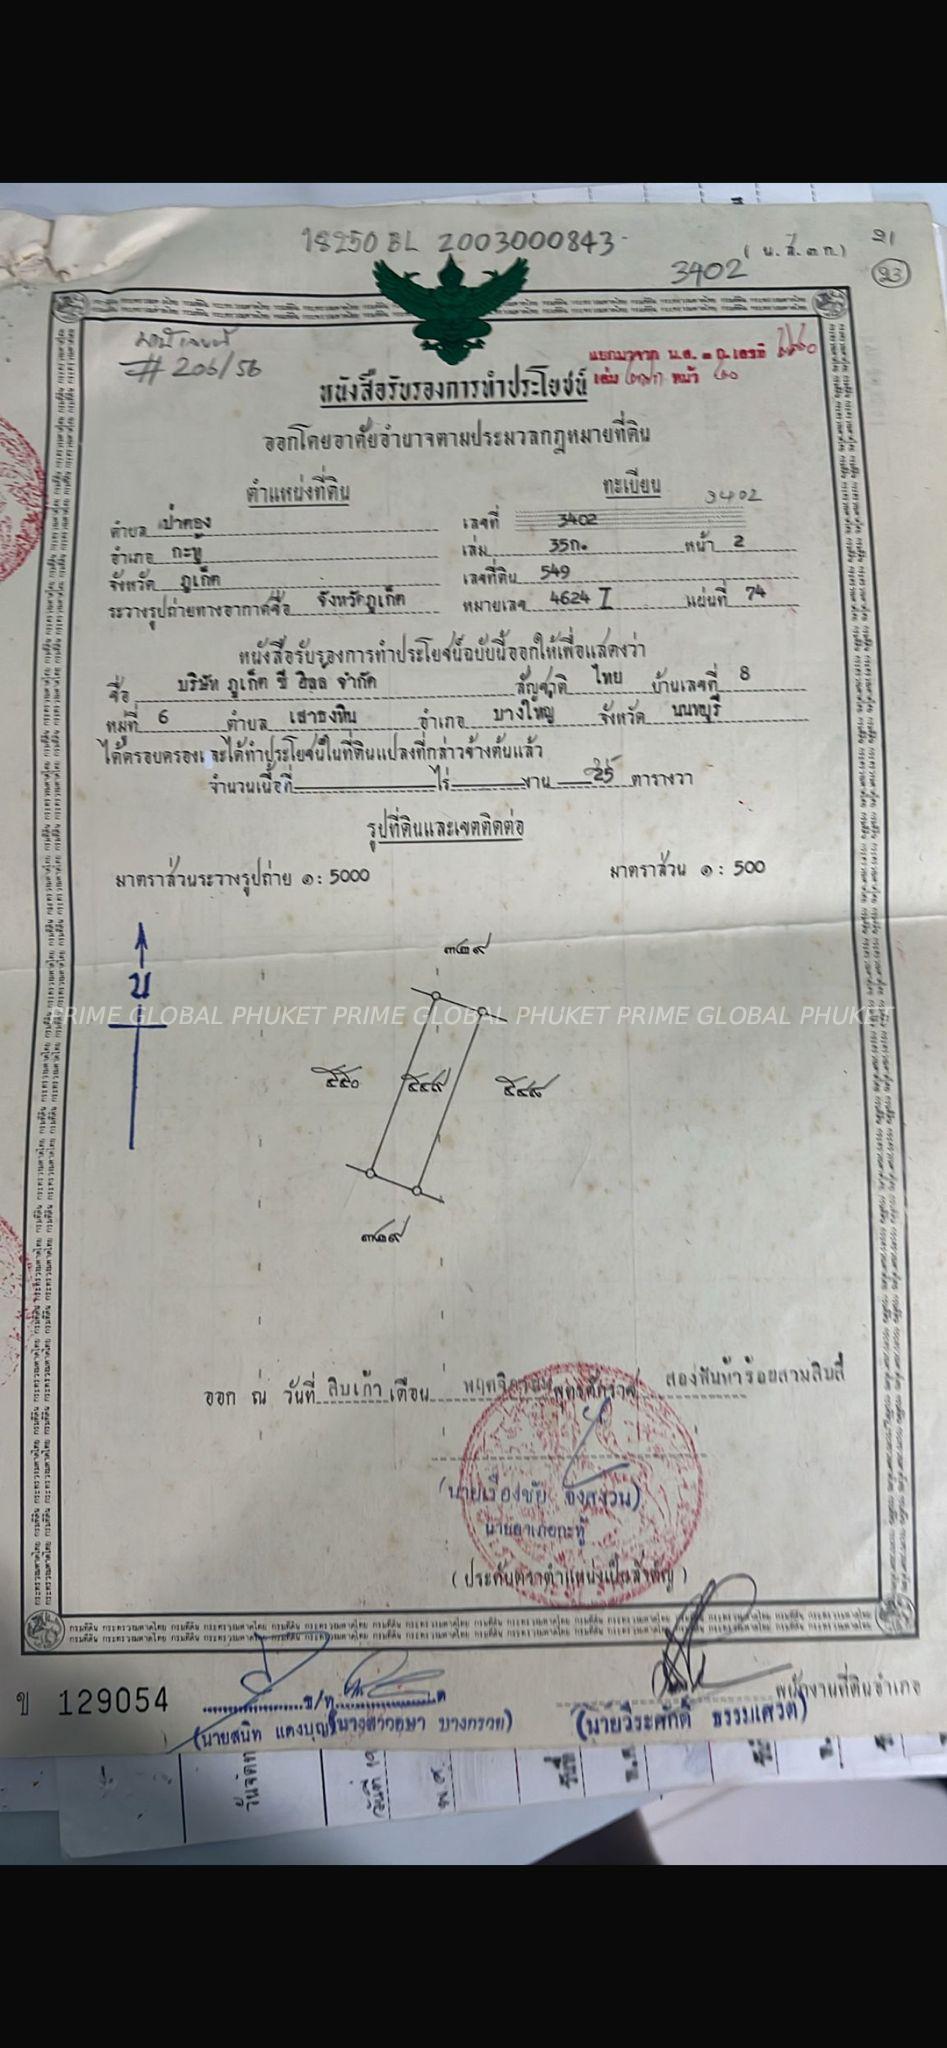 18250 BL 2003000843-
(น.ส.๓ ก.)
21
3402
23
# 206/56
แยกมาจาก น.ส. ๓ ก. เลขที่
เล่ม หน้า ๒๐
หนังสือรับรองการทำประโยชน์
ออกโดยอาศัยอำนาจตามประมวลกฎหมายที่ดิน
ตำแหน่งที่ดิน
ทะเบียน
3402
ตำบล ป่าตอง เลขที่ 3402
อำเภอ กะทู้ เล่ม 35ก. หน้า 2
จังหวัด ภูเก็ต เลขที่ดิน 549
ระวางรูปถ่ายทางอากาศชื่อ จังหวัดภูเก็ต หมายเลข 4624 I แผ่นที่ 74
หนังสือรับรองการทำประโยชน์ฉบับนี้ออกให้เพื่อแสดงว่า
ชื่อ บริษัท ภูเก็ต ซี ฮิลล จำกัด สัญชาติ ไทย บ้านเลขที่ 8
หมู่ที่ 6 ตำบล เสาธงหิน อำเภอ บางใหญ่ จังหวัด นนทบุรี
ได้ครอบครองและได้ทำประโยชน์ในที่ดินแปลงที่กล่าวข้างต้นแล้ว
จำนวนเนื้อที่ ไร่ งาน 25 ตารางวา
รูปที่ดินและเขตติดต่อ
มาตราส่วนระวางรูปถ่าย ๑ : 5000
มาตราส่วน ๑ : 500
น
๓๒๙
PRIME GLOBAL PHUKET PRIME GLOBAL PHUKET PRIME GLOBAL PHUKET
๕๕๐ ๕๔๙ ๕๔๘
๓๒๙
ออก ณ วันที่ สิบเก้า เดือน พฤศจิกายน พุทธศักราช สองพันห้าร้อยสามสิบสี่
(นายเรืองชัย จงสงวน)
นายอำเภอกะทู้
(ประทับตราตำแหน่งเป็นสำคัญ)
ข 129054
พนักงานที่ดินอำเภอ
(นายวีระศักดิ์ ธรรมเศวต)